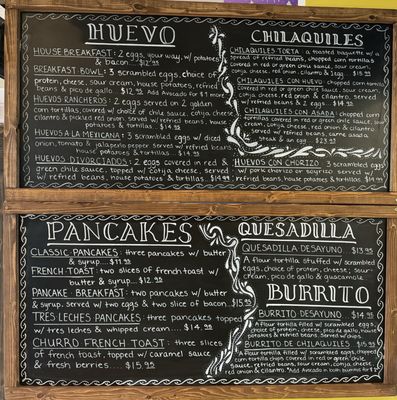 HUEVO
HOUSE BREAKFAST: 2 eggs, your way, w/ potatoes
& bacon... $12.99
BREAKFAST BOWL: 3 scrambled eggs, choice of
protein, cheese, sour cream, house potatoes, refried
beans & pico de gallo. $12.99 Add Avocado for $1 more
HUEVOS RANCHEROS: 2 eggs served on 2 golden
corn tortillas, covered w/ choice of chile sauce, cotija, cheese
cilantro & pickled red onion, served w/ refried beans, house
potatoes & tortillas. $14.99
HUEVOS A LA MEXICANA: 3 scrambled eggs w/ diced
onion, tomato & jalapeño pepper, served w/ refried beans
house potatoes & tortillas... $14.99
HUEVOS DIVORCIADOS: 2 eggs covered in red &
green chile sauce, topped w/ cotija cheese, served
w/ refried beans, house potatoes & tortillas... $14.99
CHILAQUILES
CHILAQUILES TORTA: a toasted baguette w/ a
spread of refried beans, chopped corn tortillas
covered in red or green chile sauce, sour cream,
cotija, cheese, red onion, cilantro & 1 egg... $15.99
CHILAQUILES CON HUEVO: chopped corn tortillas
covered in red or green chile sauce, sour cream,
cotija, cheese, red onion & cilantro, served
w/ refried beans & 2 eggs... $14.99
CHILAQUILES CON ASADA: chopped corn
tortillas, covered in red or green chile sauce, sour
cream, cotija, cheese, red onion & cilantro
served w/ refried beans, carne asada
steak & an egg $23.99
HUEVOS CON CHORIZO: 3 scrambled eggs
w/ pork chorizo or soyrizo served w/
refried beans, house potatoes & tortillas $14.99
PANCAKES
CLASSIC PANCAKES: three pancakes w/ butter
& syrup.... $11.99
FRENCH TOAST: two slices of french toast w/
butter & syrup... $12.99
PANCAKE BREAKFAST: two pancakes w/ butter
& syrup, served w/ two eggs & two slice of bacon $15.99
TRES LECHES PANCAKES: three pancakes topped
w/ tres leches & whipped cream.... $14.99
CHURRO FRENCH TOAST: three slices
of french toast, topped w/ caramel sauce
& fresh berries.... $15.99
QUESADILLA
QUESADILLA DESAYUNO $13.99
A flour tortilla stuffed w/ scrambled
eggs, choice of protein, cheese, sour-
cream, pico de gallo & guacamole
BURRITO
BURRITO DESAYUNO... $14.99
A flour tortilla filled w/ scrambled eggs,
choice of protein, cheese, pico de gallo, house
potatoes & refried beans, served w/ chips
BURRITO DE CHILAQUILES $15.99
A flour tortilla filled w/ scrambled eggs, chopped
corn tortillas covered in red or green chile
sauce, refried beans, sour cream, cotija, cheese,
red onion & cilantro. Add Avocado in both burritos for $